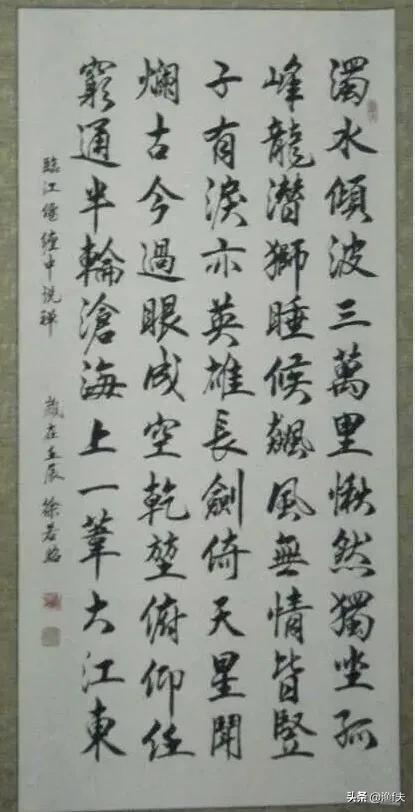 濁水傾波三萬里愀然獨坐孤
峰龍潛獅睡候飆風無情皆豎
子有淚亦英雄長劍倚天星鬥
爛古今過眼成空乾堃俯仰任
窮通半輪滄海上一葦大江東
臨江僊纏中說禪 歲在壬辰 徐若
头条 @渔f夫